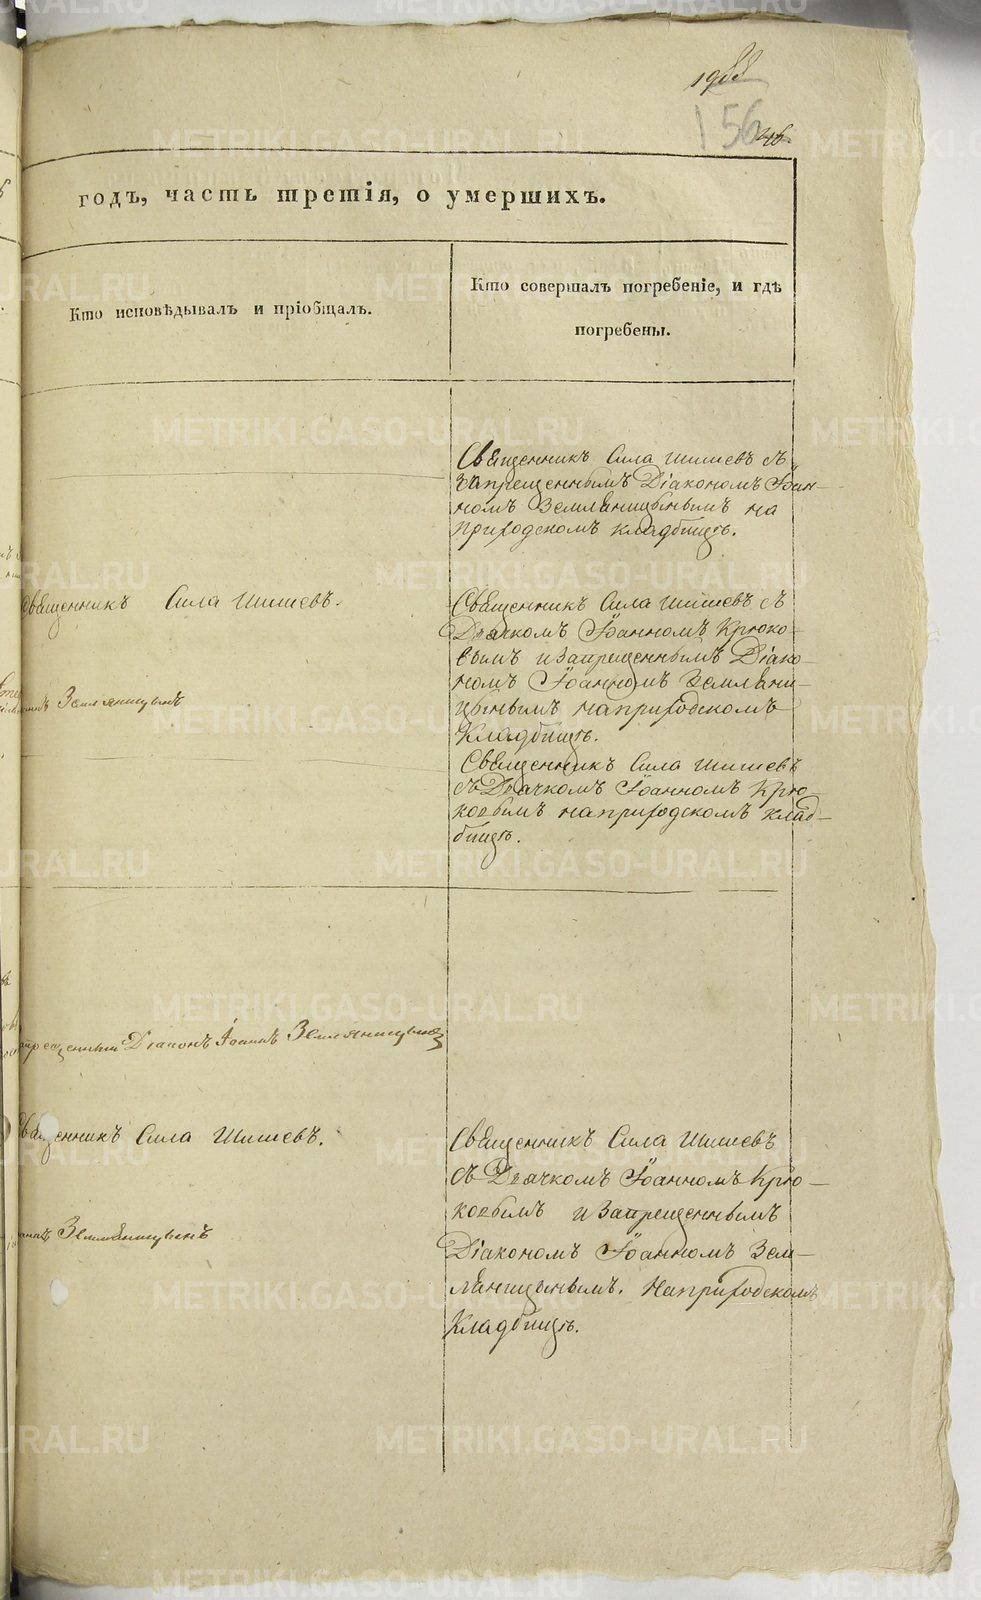 156
годъ, часть третія, о умершихъ.
Кто исповѣдывалъ и пріобщалъ.
Кто совершалъ погребеніе, и гдѣ
погребены.
Священникъ Сила Шишевъ съ
запрещеннымъ Діакономъ Іоан-
номъ Земляницынымъ на
приходскомъ кладбищѣ.
Священникъ Сила Шишевъ.
Землянищынъ
Священникъ Сила Шишевъ съ
Дьячкомъ Іоанномъ Крюко-
вымъ и Запрещеннымъ Діако-
номъ Іоанномъ Землени-
цынымъ на приходскомъ
Кладбищѣ.
Священникъ Сила Шишевъ
съ Дьячкомъ Іоанномъ Крю-
ковымъ на приходскомъ клад-
бищѣ.
Діаконъ Іоаннъ Землянищынъ
Священникъ Сила Шишевъ.
Земленищынъ
Священникъ Сила Шишевъ
съ Дьячкомъ Іоанномъ Крю-
ковымъ и Запрещеннымъ
Діакономъ Іоанномъ Зем-
ляницынымъ. На приходскомъ
Кладбищѣ.
METRIKI.GASO-URAL.RU